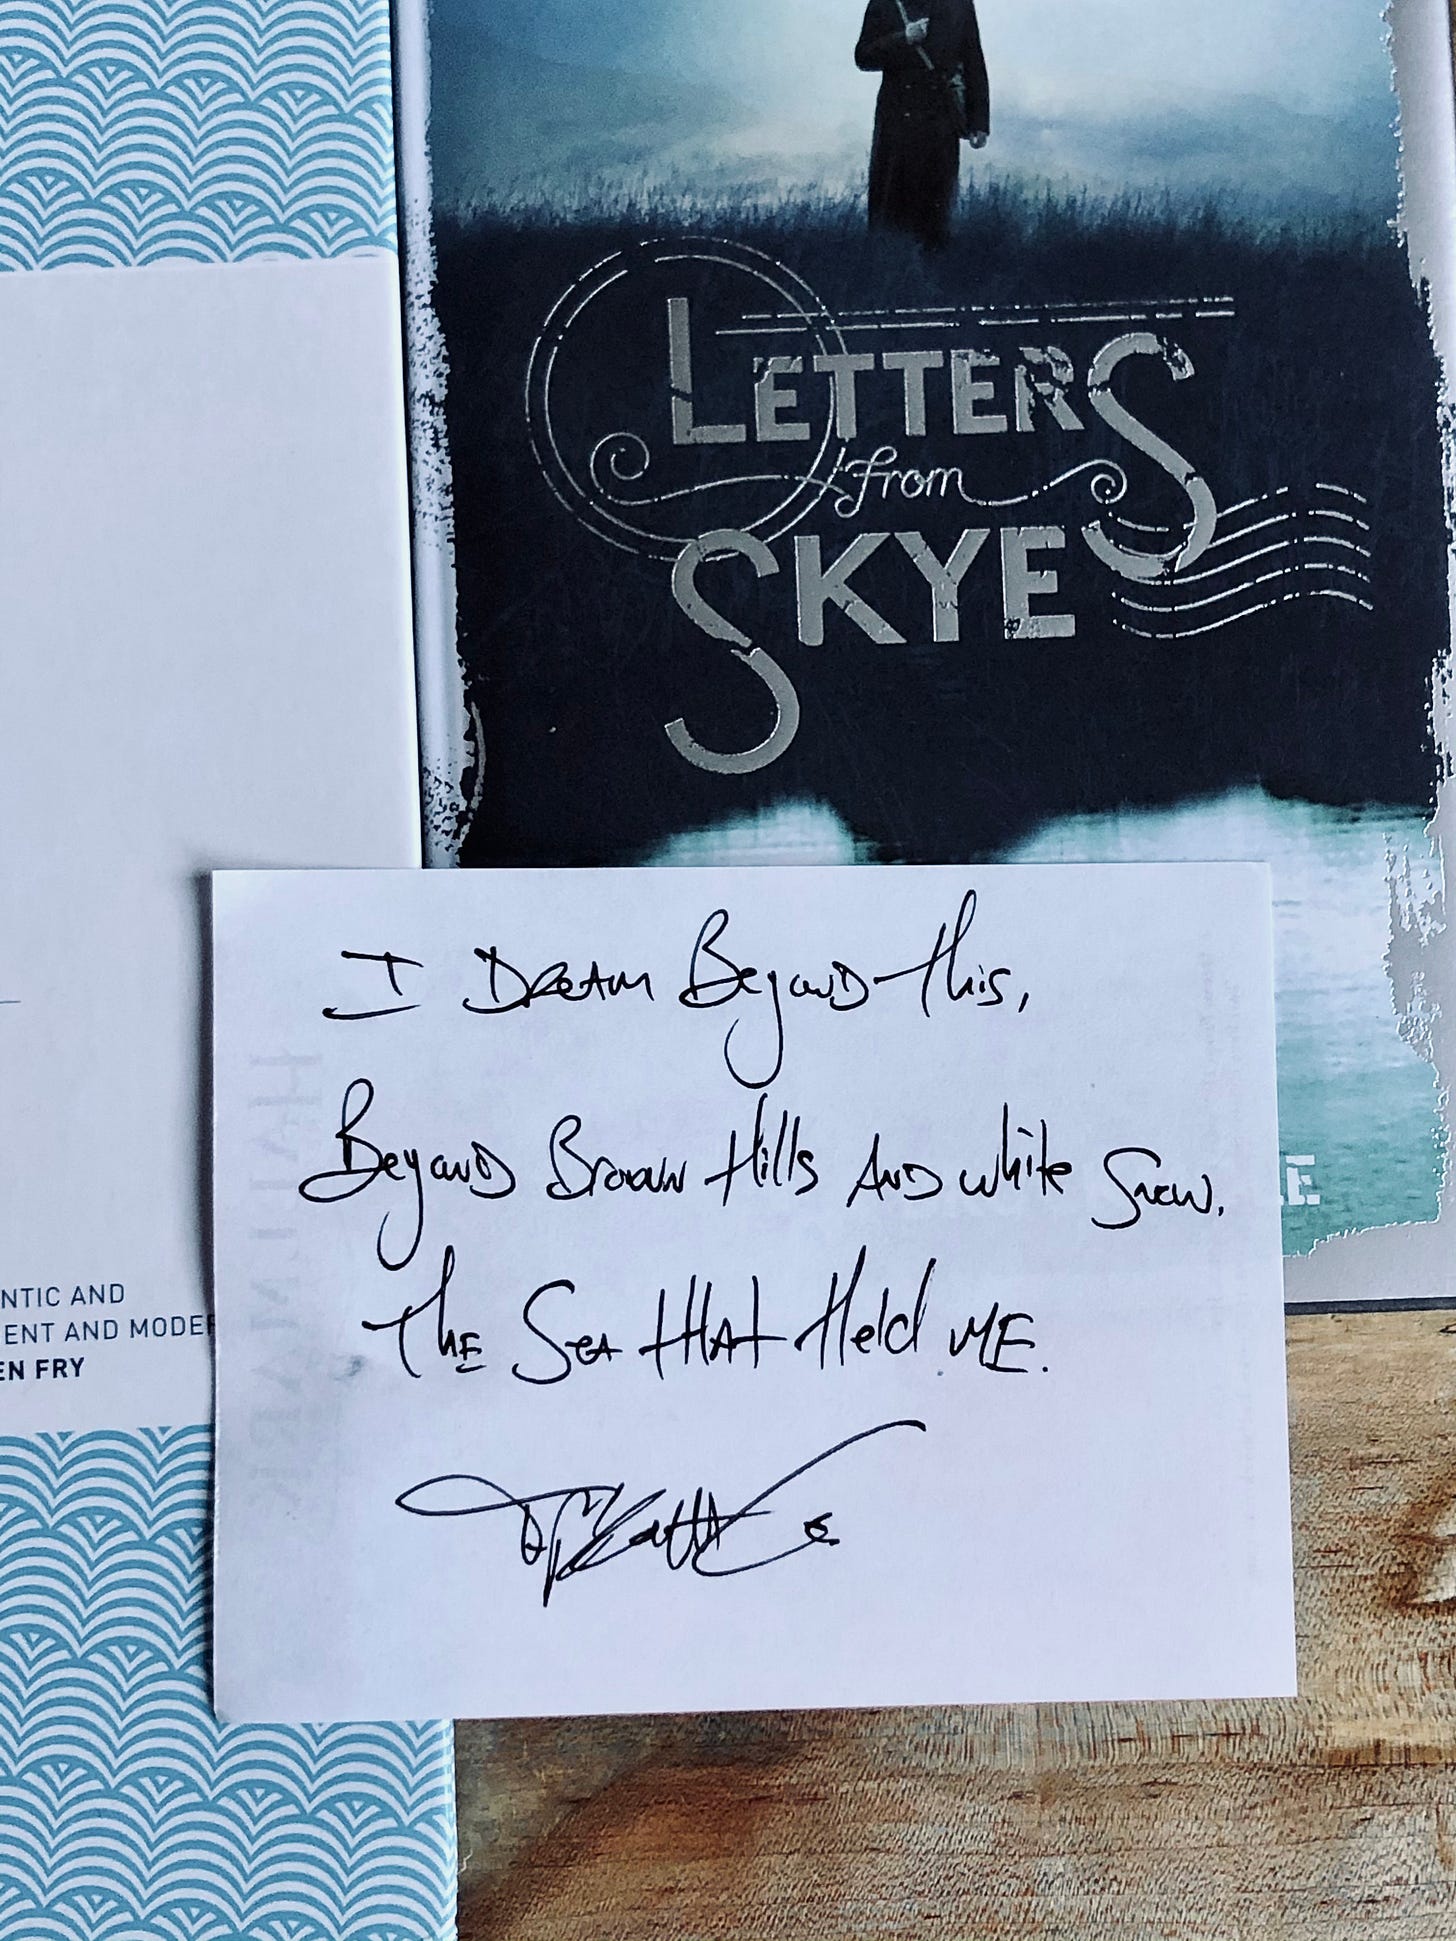 LETTERS
from
SKYE
NTIC AND
ENT AND MODE
EN FRY
I DREAM BEYOND this,
BEYOND BROWN Hills AND white Snow.
The SEA tHAt Held ME.
HALLMARK
E